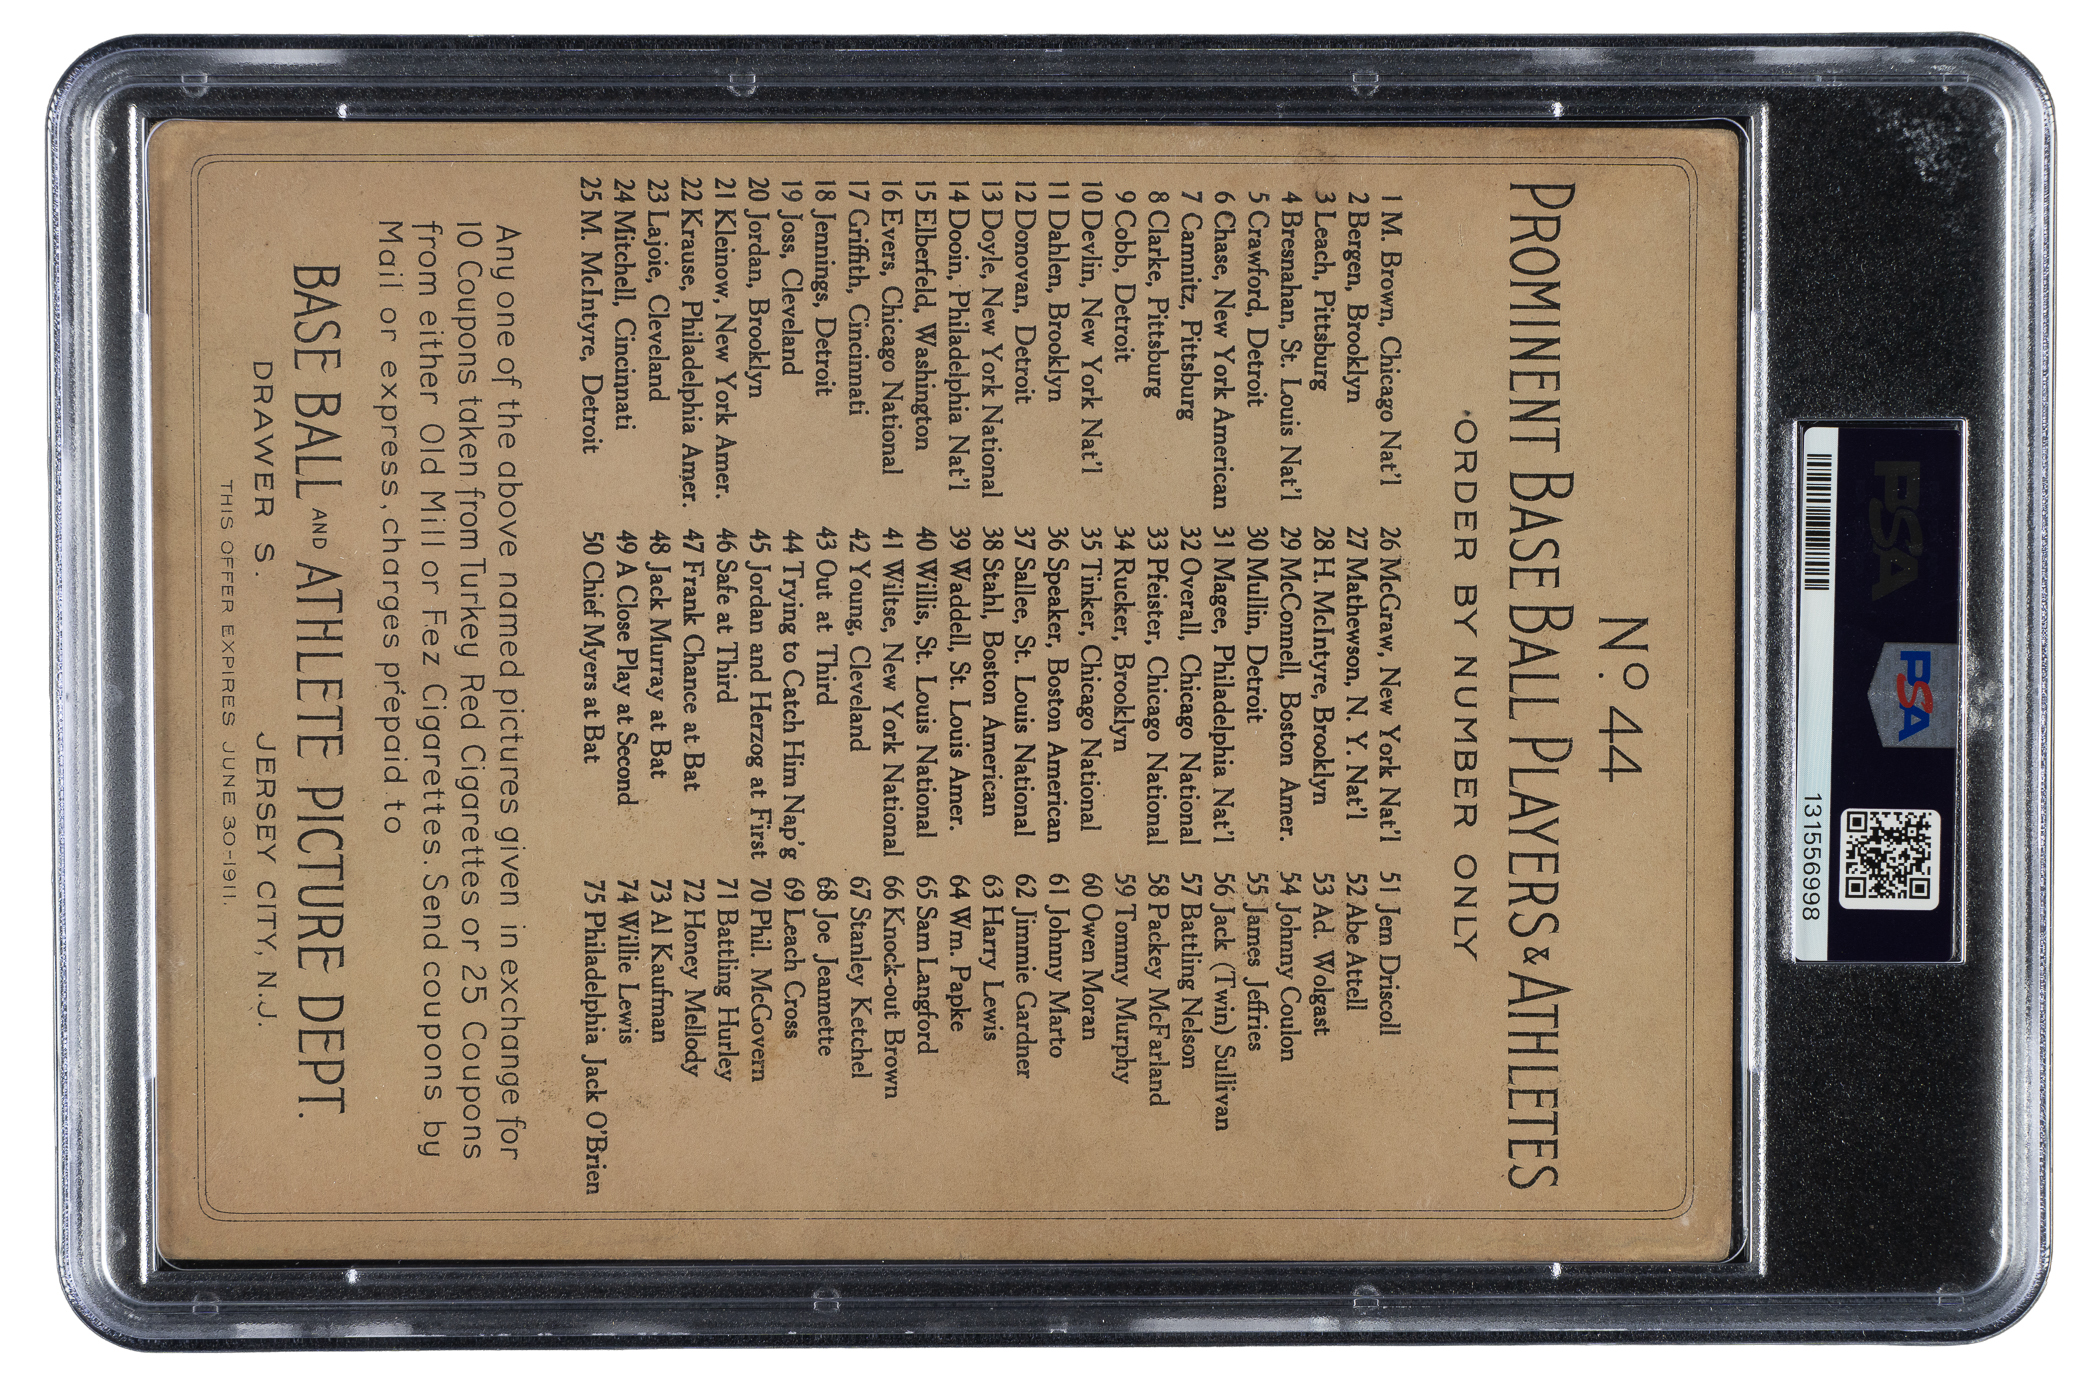 No. 44
PROMINENT BASE BALL PLAYERS & ATHLETES
ORDER BY NUMBER ONLY
1 M. Brown, Chicago Nat'l
2 Bergen, Brooklyn
3 Leach, Pittsburg
4 Bresnahan, St. Louis Nat'l
5 Crawford, Detroit
6 Chase, New York American
7 Camnitz, Pittsburg
8 Clarke, Pittsburg
9 Cobb, Detroit
10 Devlin, New York Nat'l
11 Dahlen, Brooklyn
12 Donovan, Detroit
13 Doyle, New York National
14 Dooin, Philadelphia Nat'l
15 Elberfeld, Washington
16 Evers, Chicago National
17 Griffith, Cincinnati
18 Jennings, Detroit
19 Joss, Cleveland
20 Jordan, Brooklyn
21 Kleinow, New York Amer.
22 Krause, Philadelphia Amer.
23 Lajoie, Cleveland
24 Mitchell, Cincinnati
25 M. McIntyre, Detroit
26 McGraw, New York Nat'l
27 Mathewson, N. Y. Nat'l
28 H. McIntyre, Brooklyn
29 McConnell, Boston Amer.
30 Mullin, Detroit
31 Magee, Philadelphia Nat'l
32 Overall, Chicago National
33 Pfeister, Chicago National
34 Rucker, Brooklyn
35 Tinker, Chicago National
36 Speaker, Boston American
37 Sallee, St. Louis National
38 Stahl, Boston American
39 Waddell, St. Louis Amer.
40 Willis, St. Louis National
41 Wiltse, New York National
42 Young, Cleveland
43 Out at Third
44 Trying to Catch Him Nap'g
45 Jordan and Herzog at First
46 Safe at Third
47 Frank Chance at Bat
48 Jack Murray at Bat
49 A Close Play at Second
50 Chief Myers at Bat
51 Jem Driscoll
52 Abe Attell
53 Ad. Wolgast
54 Johnny Coulon
55 James Jeffries
56 Jack (Twin) Sullivan
57 Battling Nelson
58 Packey McFarland
59 Tommy Murphy
60 Owen Moran
61 Johnny Marto
62 Jimmie Gardner
63 Harry Lewis
64 Wm. Papke
65 Sam Langford
66 Knock-out Brown
67 Stanley Ketchel
68 Joe Jeannette
69 Leach Cross
70 Phil. McGovern
71 Battling Hurley
72 Honey Mellody
73 Al Kaufman
74 Willie Lewis
75 Philadelphia Jack O'Brien
Any one of the above named pictures given in exchange for
10 Coupons taken from Turkey Red Cigarettes or 25 Coupons
from either Old Mill or Fez Cigarettes. Send coupons by
Mail or express, charges prepaid to
BASE BALL AND ATHLETE PICTURE DEPT.
DRAWER S. JERSEY CITY, N.J.
THIS OFFER EXPIRES JUNE 30-1911.
PSA
PSA
131556998